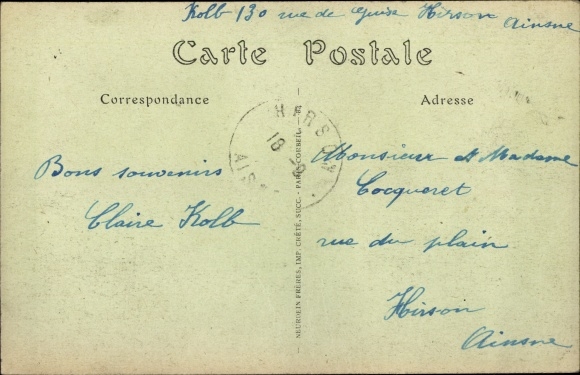 Kolb 130 rue de Guise Hirson Ainsne
Carte Postale
Correspondance
Adresse
HIRSON
18
Bons souvenirs
Claire Kolb
Monsieur et Madame
Cocqueret
rue du plain
Hirson
Ainsne
NEURDEIN FRÈRES, IMP. CRÉTÉ, SUCC. - PARIS-CORBEIL.